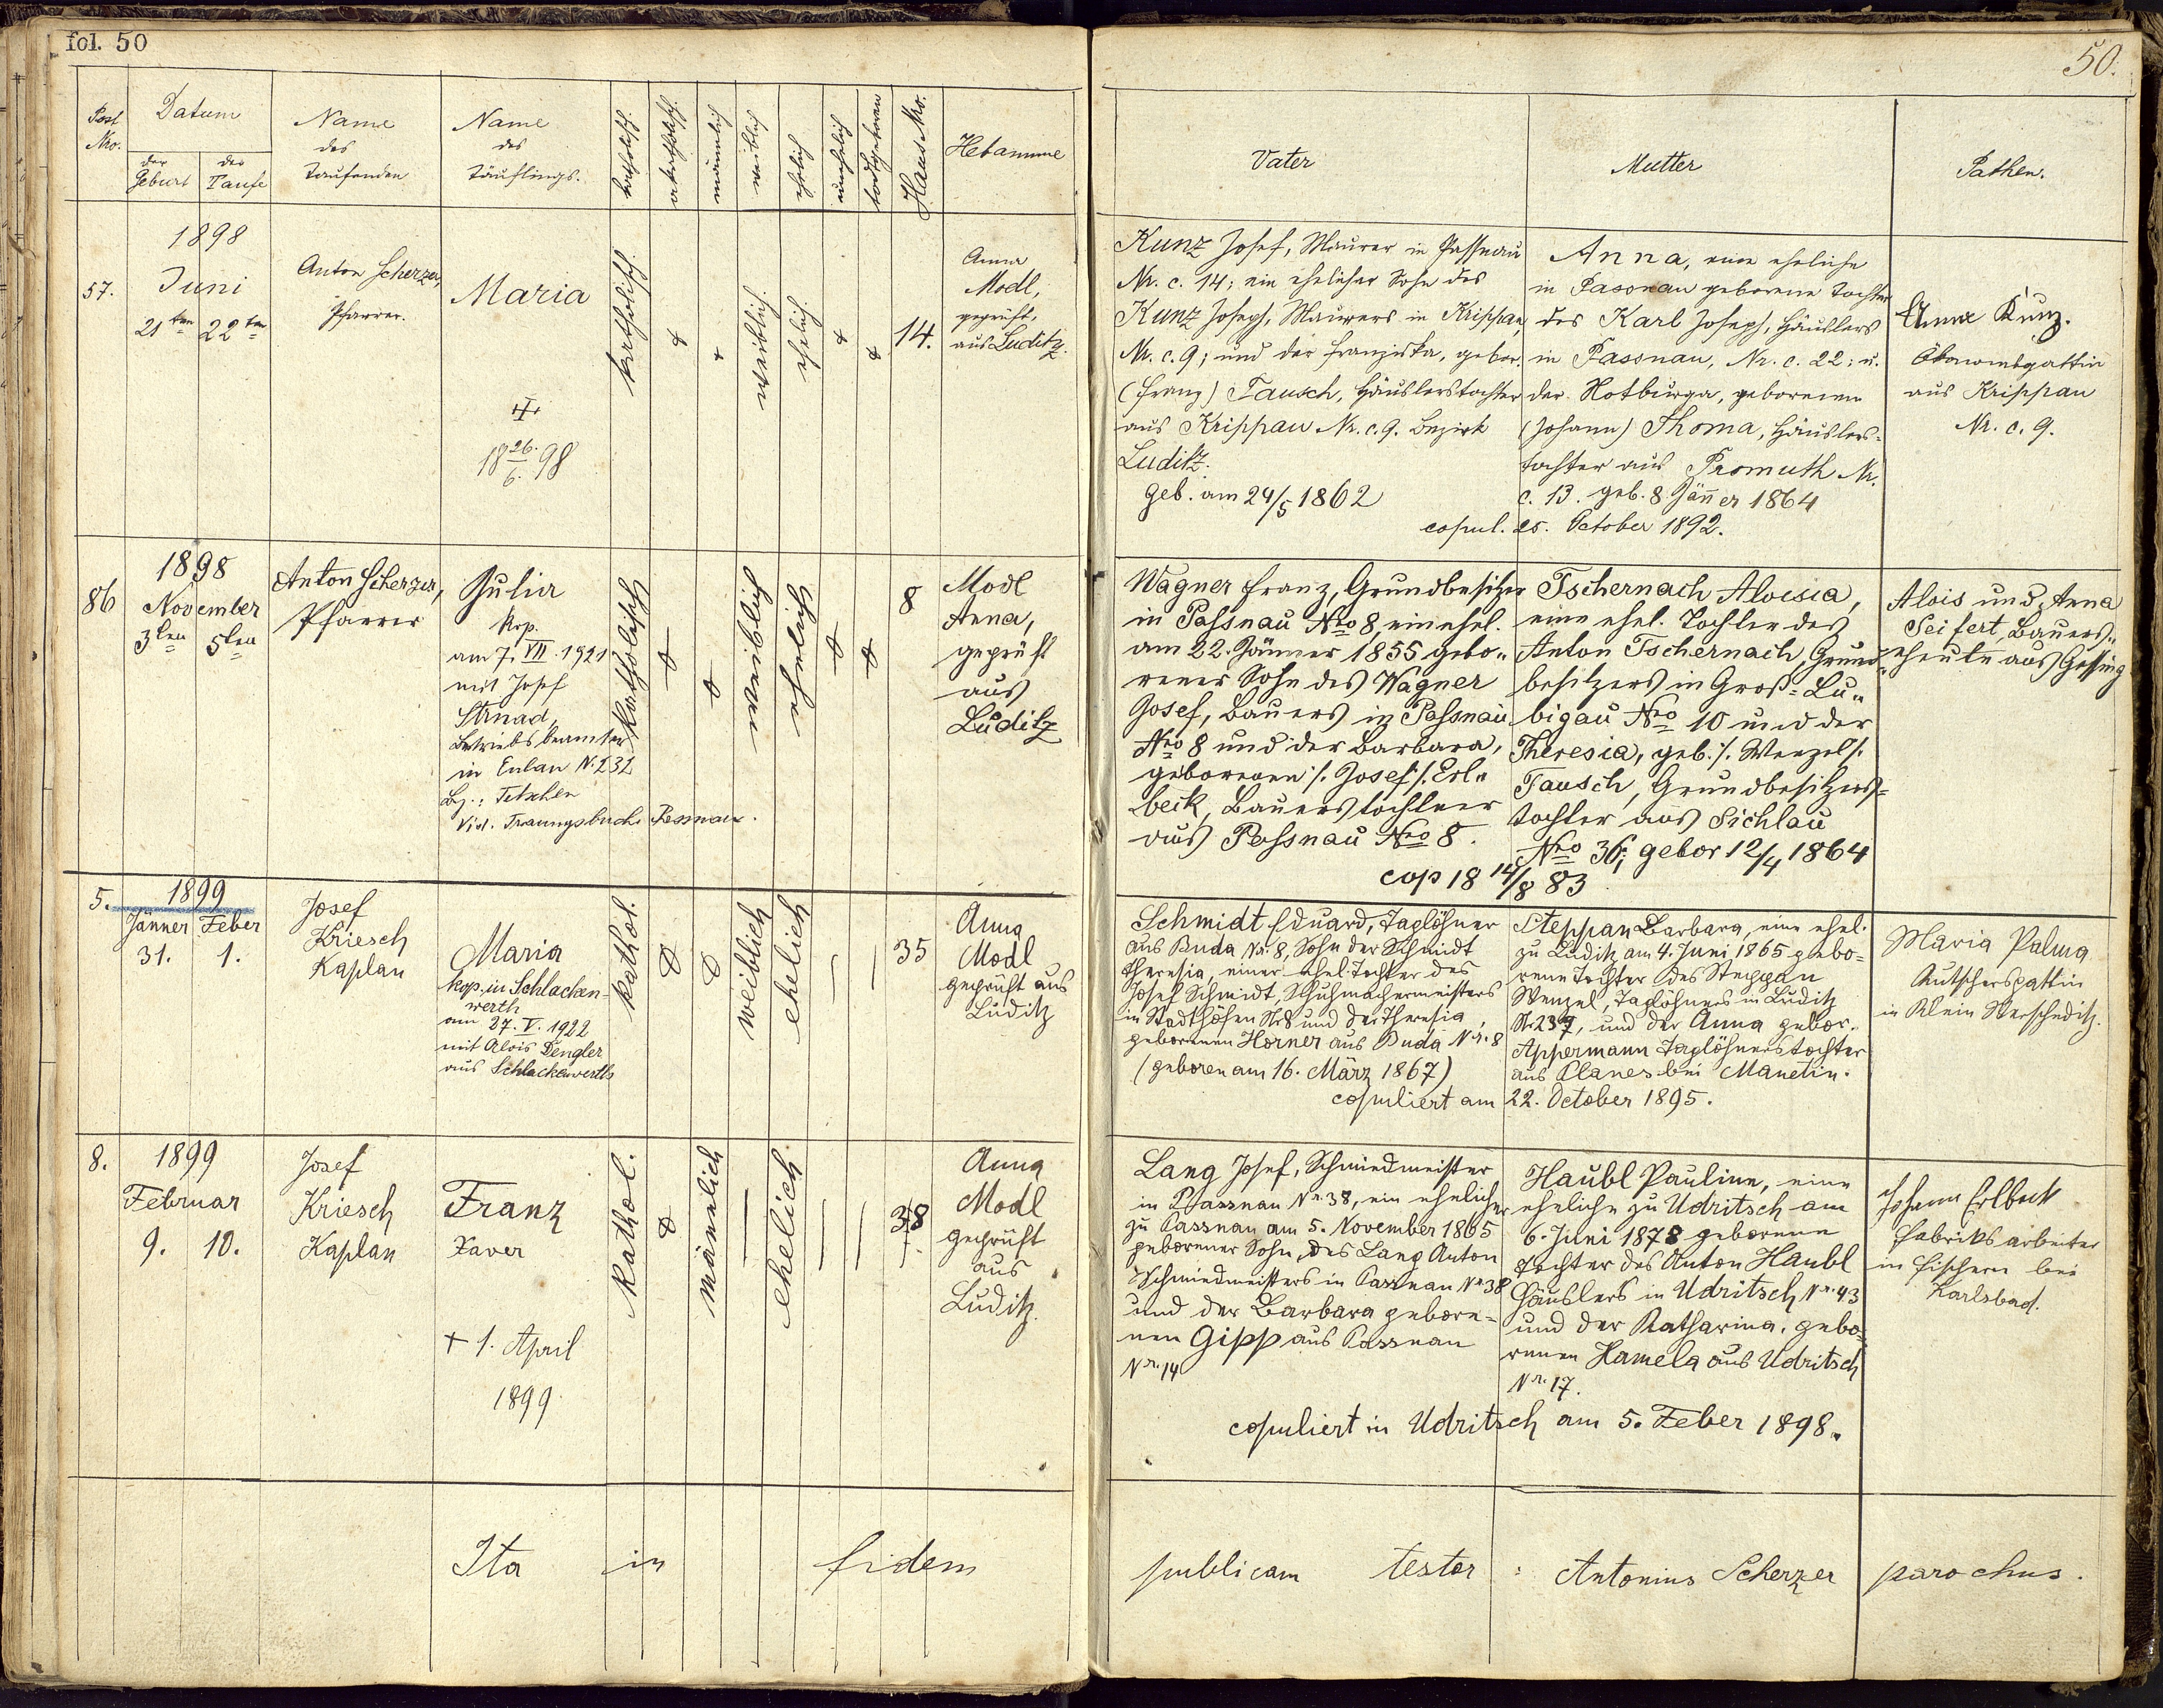 fol. 50
Post Nro.
Datum
der Geburt
der Taufe
Name
des
Taufenden
Name
des
Täuflings.
katholisch.
akatholisch.
männlich
weiblich
ehelich
unehelich
todtgeboren
Haus Nro.
Hebamme
57.
1898
Juni
21ten 22ten
Anton Scherzer,
Pfarrer.
Maria
+
18 26./6. 98
katholisch.
weiblich.
ehelich.
14.
Anna
Modl,
geprüft,
aus Luditz.
86
1898
November
3ten 5ten
Anton Scherzer,
Pfarrer
Julia
kop.
am 7. VII. 1921
mit Josef
Strnad,
Betriebsbeamter
in Eulau N. 232
Bz.: Tetschen
Vid. Trauungsbuch Passnau.
Katholisch
weiblich
ehelich
8
Modl
Anna,
geprüft
aus
Luditz
5.
1899
Jänner Feber
31. 1.
Josef
Kriesch
Kaplan
Maria
kop. in Schlacken-
werth
am 27. V. 1922
mit Alois Dengler
aus Schlackenwerth
kathol.
weiblich
ehelich
35
Anna
Modl
geprüft aus
Luditz
8.
1899
Februar
9. 10.
Josef
Kriesch
Kaplan
Franz
Xaver
+ 1. April
1899
Kathol.
männlich
ehelich
38
Anna
Modl
geprüft
aus
Luditz.
Ita in fidem
50.
Vater
Mutter
Pathen.
Kunz Josef, Maurer in Passnau
Nr. c. 14; ein ehelicher Sohn des
Kunz Joseph, Maurers in Krippau,
Nr. c. 9; und der Franziska, gebor.
(Franz) Tausch, Häuslerstochter
aus Krippau Nr. c. 9. Bezirk
Luditz.
geb. am 24/5 1862
Anna, eine eheliche
in Passnau geborene Tochter
des Karl Joseph, Häuslers
in Passnau, Nr. c. 22; u.
der Notburga, geborenen
(Johann) Thoma, Häuslers-
tochter aus Promuth Nr.
c. 13. geb. 8. Jänner 1864
copul. 25. October 1892.
Anna Kunz.
Ökonomsgattin
aus Krippau
Nr. c. 9.
Wagner Franz, Grundbesitzer
in Passnau Nro 8, ein ehel.
am 22. Jänner 1855 gebo-
rener Sohn des Wagner
Josef, Bauers in Passnau
Nro 8 und der Barbara,
geborenen /: Josef :/ Erl-
beck, Bauerstochter
aus Passnau Nro 8.
Tschernach Aloisia,
eine ehel. Tochter des
Anton Tschernach, Grund-
besitzers in Groß-Lu-
bigau Nro 10 und der
Theresia, geb. /: Wenzel :/
Tausch, Grundbesitzers-
tochter aus Sichlau
Nro 36; gebor 12/4 1864
cop 18 14/8 83
Alois und Anna
Seifert, Bauers-
eheleute aus Gessing
Schmidt Eduard, Taglöhner
aus Buda Nr. 8, Sohn der Schmidt
Theresia, einer ehel. Tochter des
Josef Schmidt, Schuhmachermeisters
in Stadthöfen Nr 8 und der Theresia,
geborenen Horner aus Buda Nr. 8
(geboren am 16. März 1867)
Steppan Barbara, eine ehel.
zu Luditz am 4. Juni 1865 gebo-
rene Tochter des Steppan
Wenzel, Taglöhners in Luditz
Nr 237, und der Anna gebor.
Appermann Taglöhnerstochter
aus Planes bei Manetin.
copuliert am 22. October 1895.
Maria Palma
Kutschersgattin
in Klein Werscheditz.
Lang Josef, Schmiedmeister
in Passnau Nr. 38, ein ehelicher
zu Passnau am 5. November 1865
geborener Sohn, des Lang Anton
Schmiedmeisters in Passnau Nr. 38
und der Barbara gebore-
nen Gipp aus Passnau
Nr. 14
Haubl Pauline, eine
eheliche zu Udritsch am
6. Juni 1878 geborene
Tochter des Anton Haubl
Häuslers in Udritsch Nr. 43
und der Katharina, gebo-
renen Hamela aus Udritsch
Nr. 17.
copuliert in Udritsch am 5. Feber 1898.
Johann Erlbeck
Fabriksarbeiter
in Fischern bei
Karlsbad.
publicam testor : Antonius Scherzer parochus.